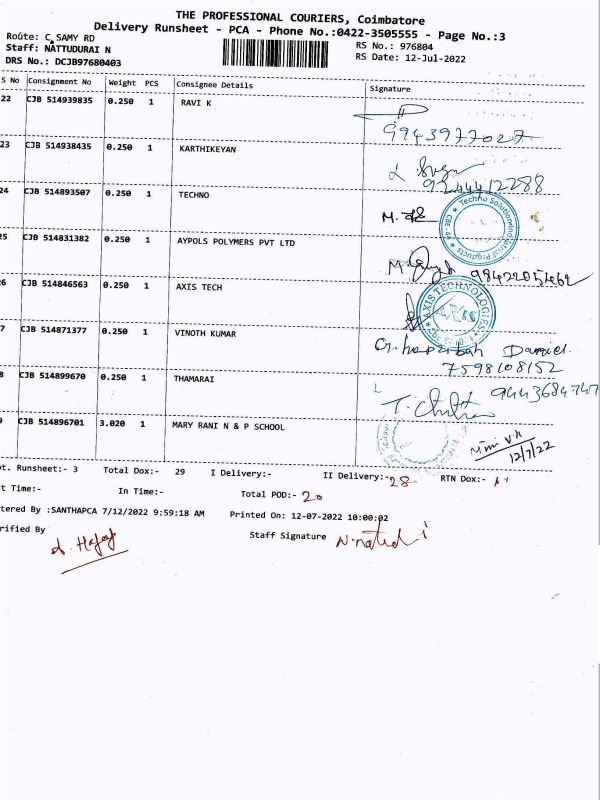 THE PROFESSIONAL COURIERS, Coimbatore
Delivery Runsheet - PCA - Phone No.:0422-3505555 - Page No.:3
Route: C SAMY RD
RS No.: 976804
Staff: NATTUDURAI N
RS Date: 12-Jul-2022
DRS No.: DCJB97680403
S No Consignment No Weight PCS Consignee Details Signature
22 CJB 514939835 0.250 1 RAVI K
9943977027
23 CJB 514938435 0.250 1 KARTHIKEYAN
9244412288
24 CJB 514893507 0.250 1 TECHNO
M.
Techno Solution Industrial Products
25 CJB 514831382 0.250 1 AYPOLS POLYMERS PVT LTD
M. 9842205462
6 CJB 514846563 0.250 1 AXIS TECH
AXIS TECHNOLOGIES
AXIS
7 CJB 514871377 0.250 1 VINOTH KUMAR
Daniel.
7598108152
8 CJB 514899670 0.250 1 THAMARAI
T. Chitra
CJB 514896701 3.020 1 MARY RANI N & P SCHOOL
Mini V.A
12/7/22
ot. Runsheet:- 3 Total Dox:- 29 I Delivery:- II Delivery:- 28 RTN Dox:-
t Time:- In Time:- Total POD:- 20
tered By :SANTHAPCA 7/12/2022 9:59:18 AM Printed On: 12-07-2022 10:00:02
rified By Staff Signature